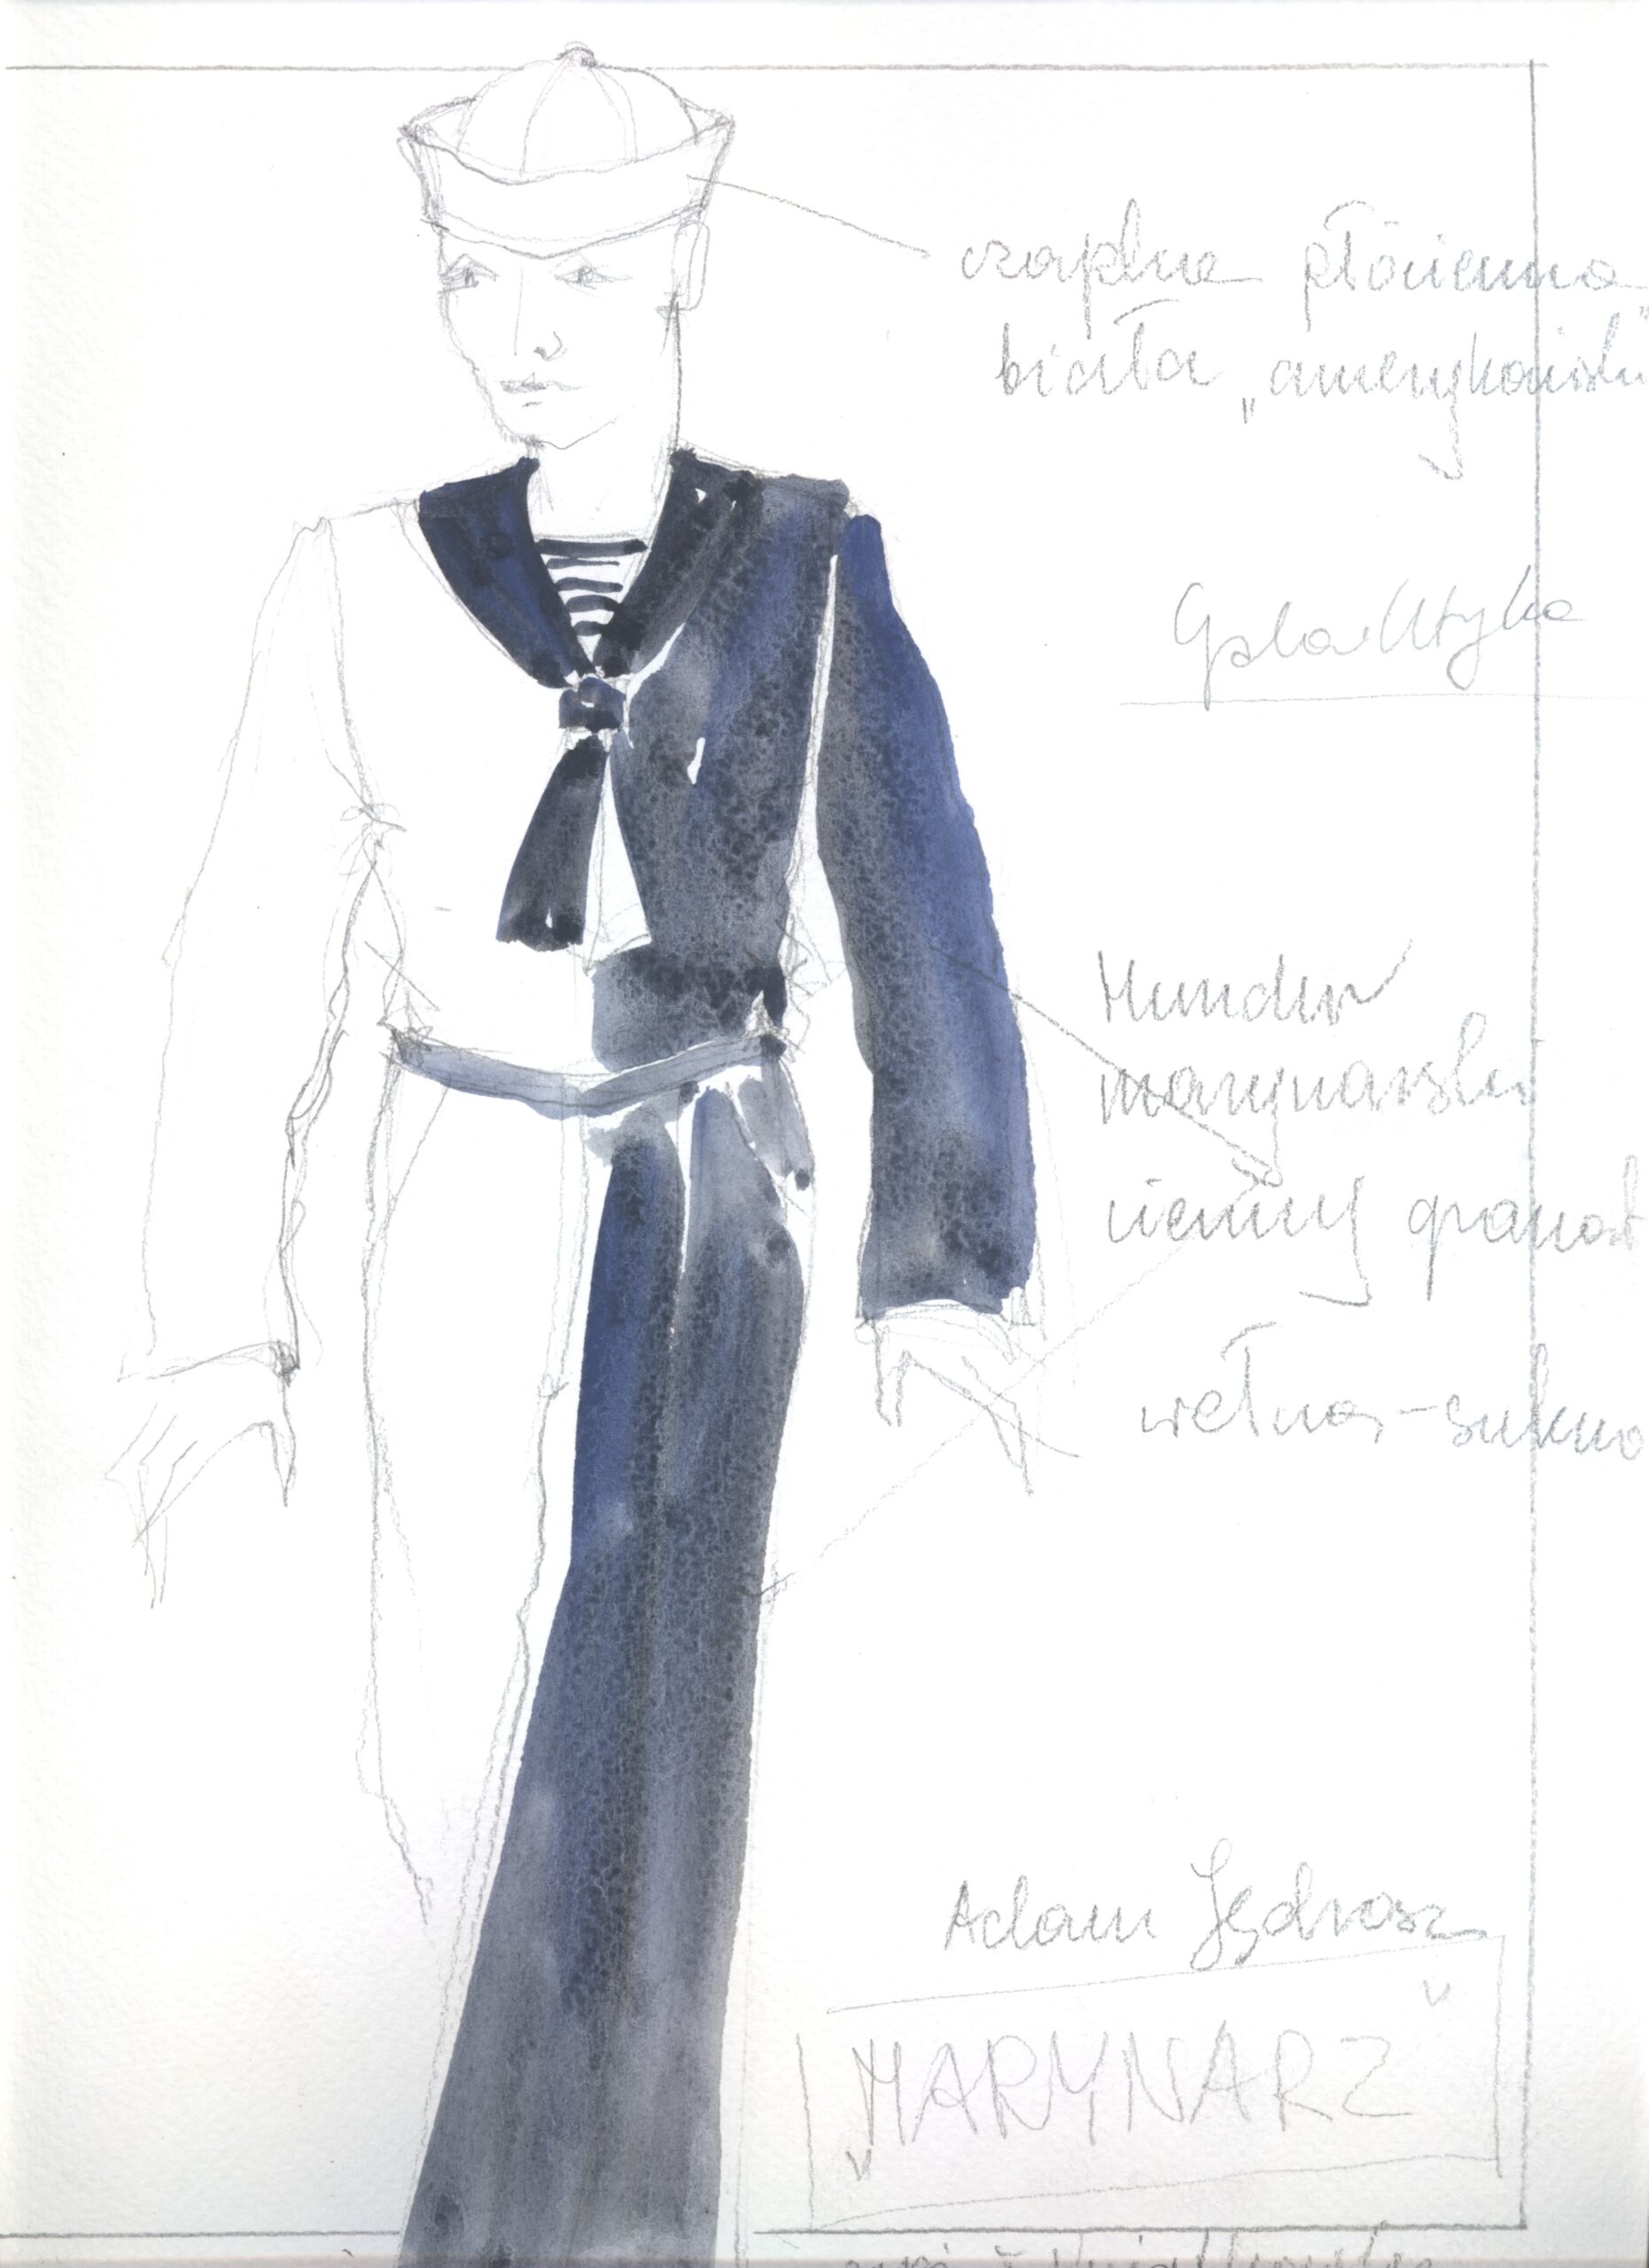 czapka płócienna
biała „amerykańska"
Galaktyka
Mundur
marynarski
ciemny granat
wełna-sukno
Adam Jędrosz
"MARYNARZ"